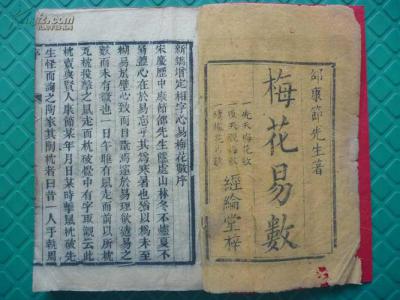 邵康節先生著
梅花易數
一先天梅花數
一後天觀梅數
經綸堂梓
新鐫增定相字心易梅花數序
宋慶曆中康節先生隱處山林冬不爐夏不
扇蓋心在於易忘乎其為寒暑也猶以為未至
糊易於壁心致而目玩焉邃於易理欲造易之
數而未有徵也一日午睡有鼠走而前以所枕
瓦枕投擊之鼠走而枕破覺中有字取觀云此
枕賣與賢人康節某年月日某時擊鼠枕破先
生怪而詢之陶家其陶枕者曰昔一人手執周